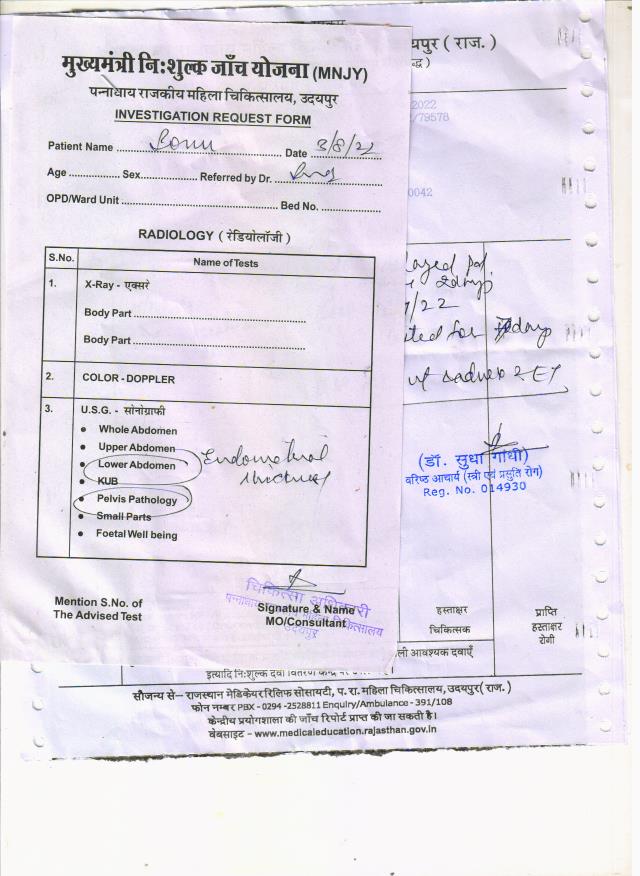 मुख्यमंत्री निःशुल्क जाँच योजना (MNJY)
पन्नाधाय राजकीय महिला चिकित्सालय, उदयपुर
INVESTIGATION REQUEST FORM
Patient Name Date 3/8/22
Age Sex Referred by Dr.
OPD/Ward Unit Bed No.
RADIOLOGY ( रेडियोलॉजी )
S.No. Name of Tests
1. X-Ray - एक्सरे
Body Part
Body Part
2. COLOR - DOPPLER
3. U.S.G. - सोनोग्राफी
• Whole Abdomen
• Upper Abdomen
• Lower Abdomen
• KUB
• Pelvis Pathology
• Small Parts
• Foetal Well being
Endometrial
thickness
चिकित्सा अधिकारी
पन्नाधाय महिला चिकित्सालय
उदयपुर
Mention S.No. of
The Advised Test
Signature & Name
MO/Consultant
यपुर ( राज. )
2022
/79578
0042
layed
2 days
/22
for 7 days
(डॉ. सुधा गांधी)
वरिष्ठ आचार्य (स्त्री एवं प्रसुति रोग)
Reg. No. 014930
हस्ताक्षर
चिकित्सक
प्राप्ति
हस्ताक्षर
रोगी
ली आवश्यक दवाएँ
इत्यादि निःशुल्क दवा वितरण केन्द्र
सौजन्य से– राजस्थान मेडिकेयर रिलिफ सोसायटी, प. रा. महिला चिकित्सालय, उदयपुर( राज. )
फोन नम्बर PBX - 0294 -2528811 Enquiry/Ambulance - 391/108
केन्द्रीय प्रयोगशाला की जाँच रिपोर्ट प्राप्त की जा सकती है।
वेबसाइट - www.medicaleducation.rajasthan.gov.in